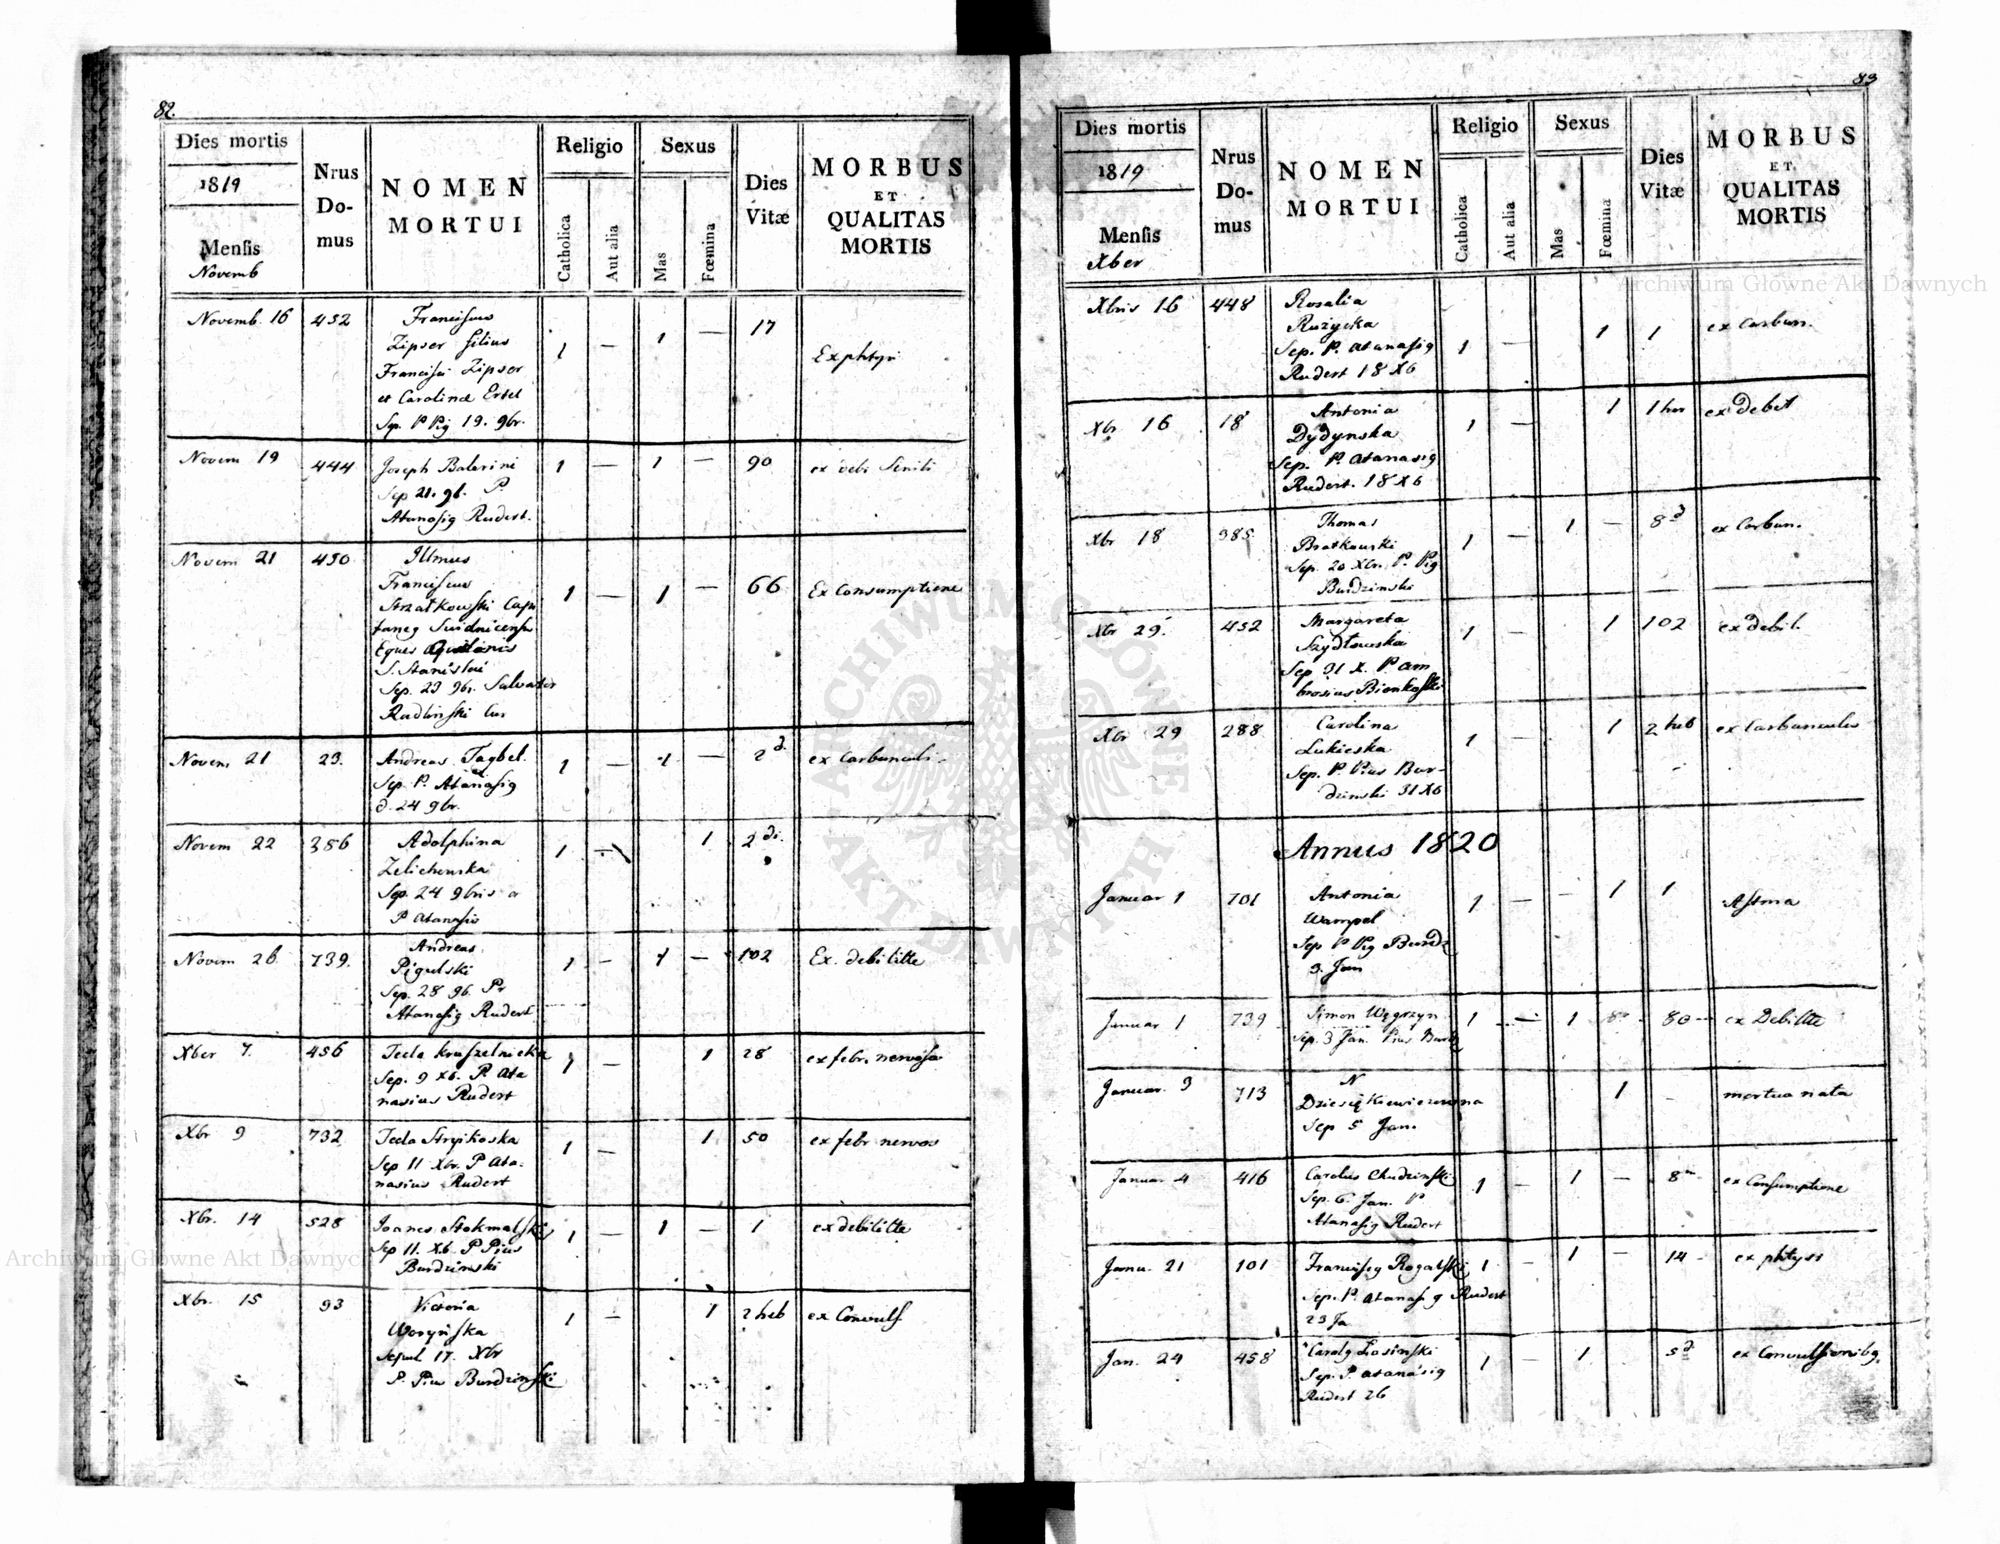 82.
Dies mortis
1819
Mensis
Novemb
Nrus Do- mus
NOMEN MORTUI
Religio
Catholica
Aut alia
Sexus
Mas
Fœmina
Dies Vitæ
MORBUS ET QUALITAS MORTIS
Novemb. 16 452 Franciscus 1 — 1 — 17
Zipser filius
Francisci Zipser
et Carolinæ Ertel
Sep. P Pig 19. 9br.
Novem 19 444 Joseph Balerini 1 — 1 — 90
Sep 21. 9b. P.
Atanasig Rudert.
Novem 21 450 Illmus 1 — 1 — 66 Ex Consumptione
Franciscus
Strzałkowski
Eques
S. Stanislai
Sep. 23 9br. Salvator
Radlinski
Novem 21 23. Andreas Tagbel. 1 — 1 — 2 d. ex Carbunculi
Sep. P. Atanasig
d. 24 9br.
Novem 22 386 Adolphina 1 — 1 2 di.
Zelichowska
Sep. 24 9bris a
P Atanasio
Novem 26 739. Andreas 1 — 1 — 102 Ex. debilitte
Pigulski
Sep. 28 9b. Pr
Atanasig Rudert
Xber 7. 456 Tecla Kruszelnicka 1 — 1 28 ex febr. nervosa
Sep. 9 Xb. P. Ata
nasius Rudert
Xbr 9 732 Tecla 1 — 1 50 ex febr nervos
Sep 11 Xbr. P Ata-
nasius Rudert
Xbr. 14 528 Joanes Stokmalski 1 — 1 — 1 ex debilitte
Sep 11. Xb. P Pius
Burdzinski
Xbr. 15 93 Victoria 1 — 1 2 heb ex Convuls
Woryńska
Sepul 17. Xbr
P. Pius Burdzinski
83
Dies mortis
1819
Mensis
Xber
Nrus Do- mus
NOMEN MORTUI
Religio
Catholica
Aut alia
Sexus
Mas
Fœmina
Dies Vitæ
MORBUS ET. QUALITAS MORTIS
Xbris 16 448 Rosalia 1 — 1 1 ex Carbun.
Rużycka
Sep. P. Atanasig
Rudert 18 Xb
Xbr 16 18 Antonia 1 — 1 1 hor ex debet
Dydynska
Sep. P. Atanasig
Rudert. 18 Xb
Xbr 18 385 Thomas 1 — 1 — 8 d ex Carbun.
Bratkowski
Sep. 20 Xbr. P. Pig
Burdzinski
Xbr 29. 452 Margareta 1 — 1 102 ex debil.
Szydłowska
Sep 31 X. P Am
brosius Bienkoski
Xbr 29 288 Carolina 1 — 1 2 heb ex Carbunculo
Lukieska
Sep. P. Pius Bur-
dzinski 31 Xb
Annus 1820
Januar 1 701 Antonia 1 — — 1 1 Astma
Wampel
Sep P Pig Burdz
3. Jan
Januar 1 739 Simon Węgrzyn 1 — 1 80 ex Debilitte
Sep. 3 Jan. Pius Burdz
Januar. 3 713 N 1 mortua nata
Dziesiękiewiczowna
Sep 5 Jan.
Januar 4 416 Carolus Chudzinski 1 — 1 — 8 m ex Consumptione
Sep. 6. Jan. P
Atanasig Rudert
Janu. 21 101 Franciscg Rogalski 1 — 1 — 14 ex phtysi
Sep. P. Atanasig Rudert
23 Ja
Jan. 24 458 Carolg Losinski 1 — 1 5 d ex Convulsionibg.
Sep. P. Atanasig
Rudert 26
ARCHIWUM GŁÓWNE AKT DAWNYCH
Archiwum Główne Akt Dawnych
Archiwum Główne Akt Dawnych